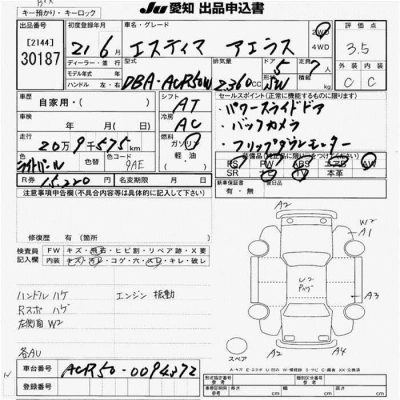 キー預かり・キーロック
JU 愛知 出品申込書
出品番号
[2144]
30187
初度登録年月
21 6月
車名・グレード
エスティマ アエラス
2WD
4WD
評価点
3.5
ディーラー・並行
モデル年式
ハンドル 左・右
型式
DBA-ACR50W
排気量
2360cc
ドア
5
定員
7人
外装
C
内装
C
車歴
自家用・
シフト
AT
エアコン
AC
燃料
ガソリン
軽油
走行
20万9千575km
色
色替
色コード
9AE
R券
15,220
名変期限 月 日
セールスポイント(正常に機能する物に限ります)
・パワースライドドア
・バックカメラ
・フリップダウンモニター
装備品(純正品に限りチェックをつけてください)
PS PW ABS エアB AW
SR ナビ TV 本革
新車保証書
有・無
注意事項申告欄(不具合内容等は具体的に記入して下さい)
修復歴 有(箇所
検査員記入欄
FW キズ・飛石・ヒビ割・リペア跡・X要
内装 キズ・汚レ・コゲ・穴・スレ・キレ・破レ
ハンドルハゲ エンジン振動
Rスホハゲ
左側面W2
各AU
車台番号
ACR50-0094372
登録番号
A2
W2
A1
U2
A3
A2
A4
スペア